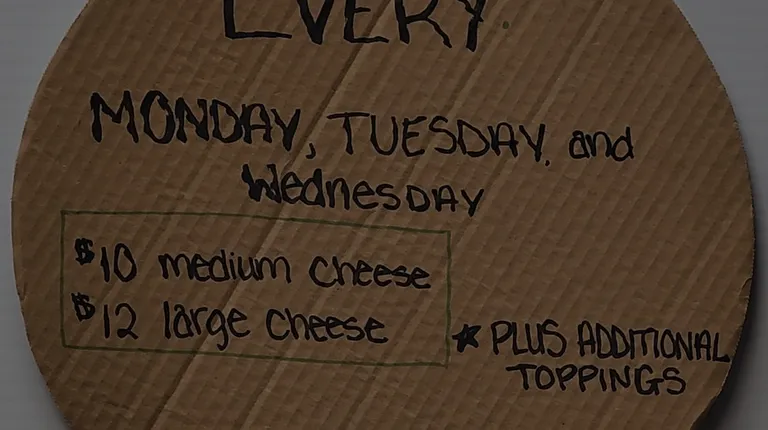 EVERY
MONDAY, TUESDAY, and
WednesDAY
$10 medium cheese
$12 large cheese
★ PLUS ADDITIONAL
TOPPINGS